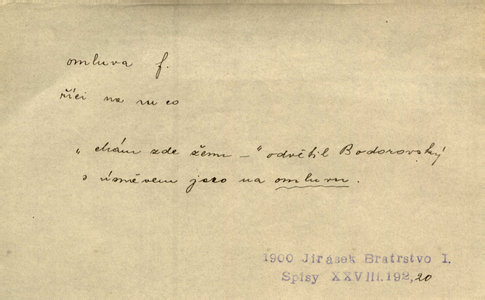 omluva f.
říci na ni co
„ chám zde ženu – " odvětil Bodorovský
s úsměvem jako na omluvu.
1900 Jirásek Bratrstvo I.
Spisy XXVIII.192,20